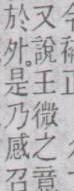 又說王微之意
於外。是乃感召